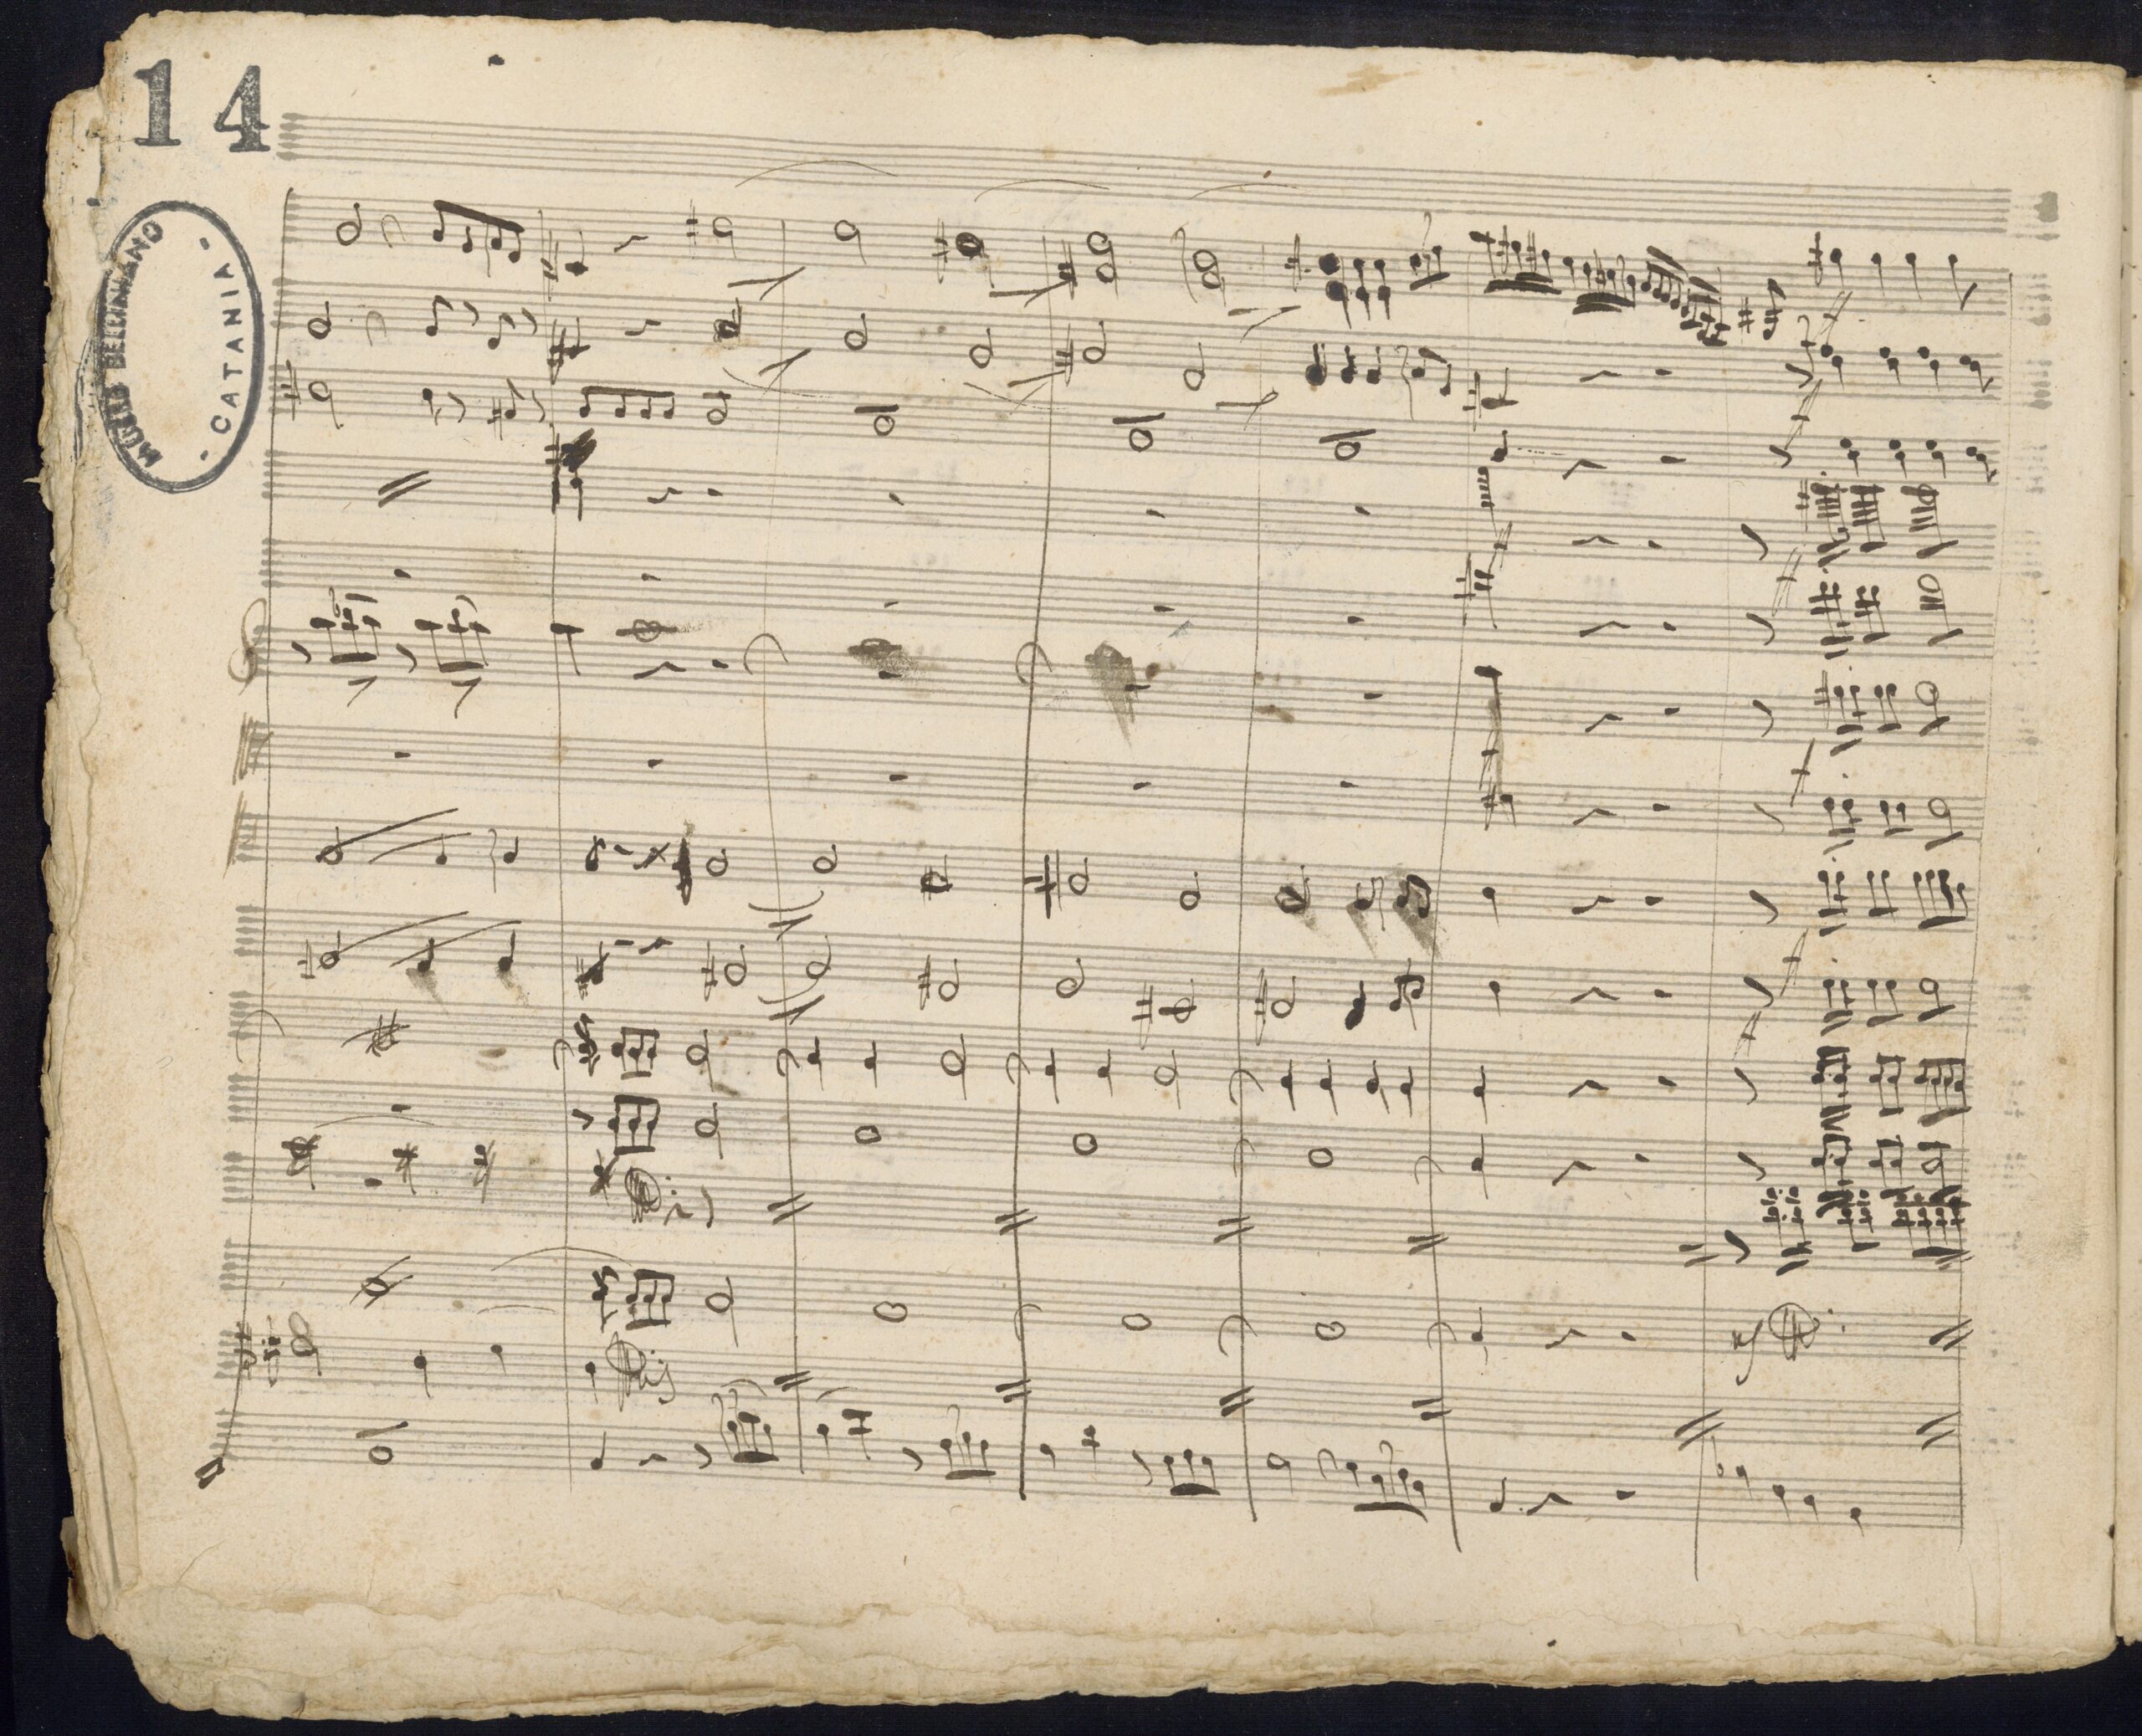 14
MUSEO BELLINIANO
· CATANIA ·